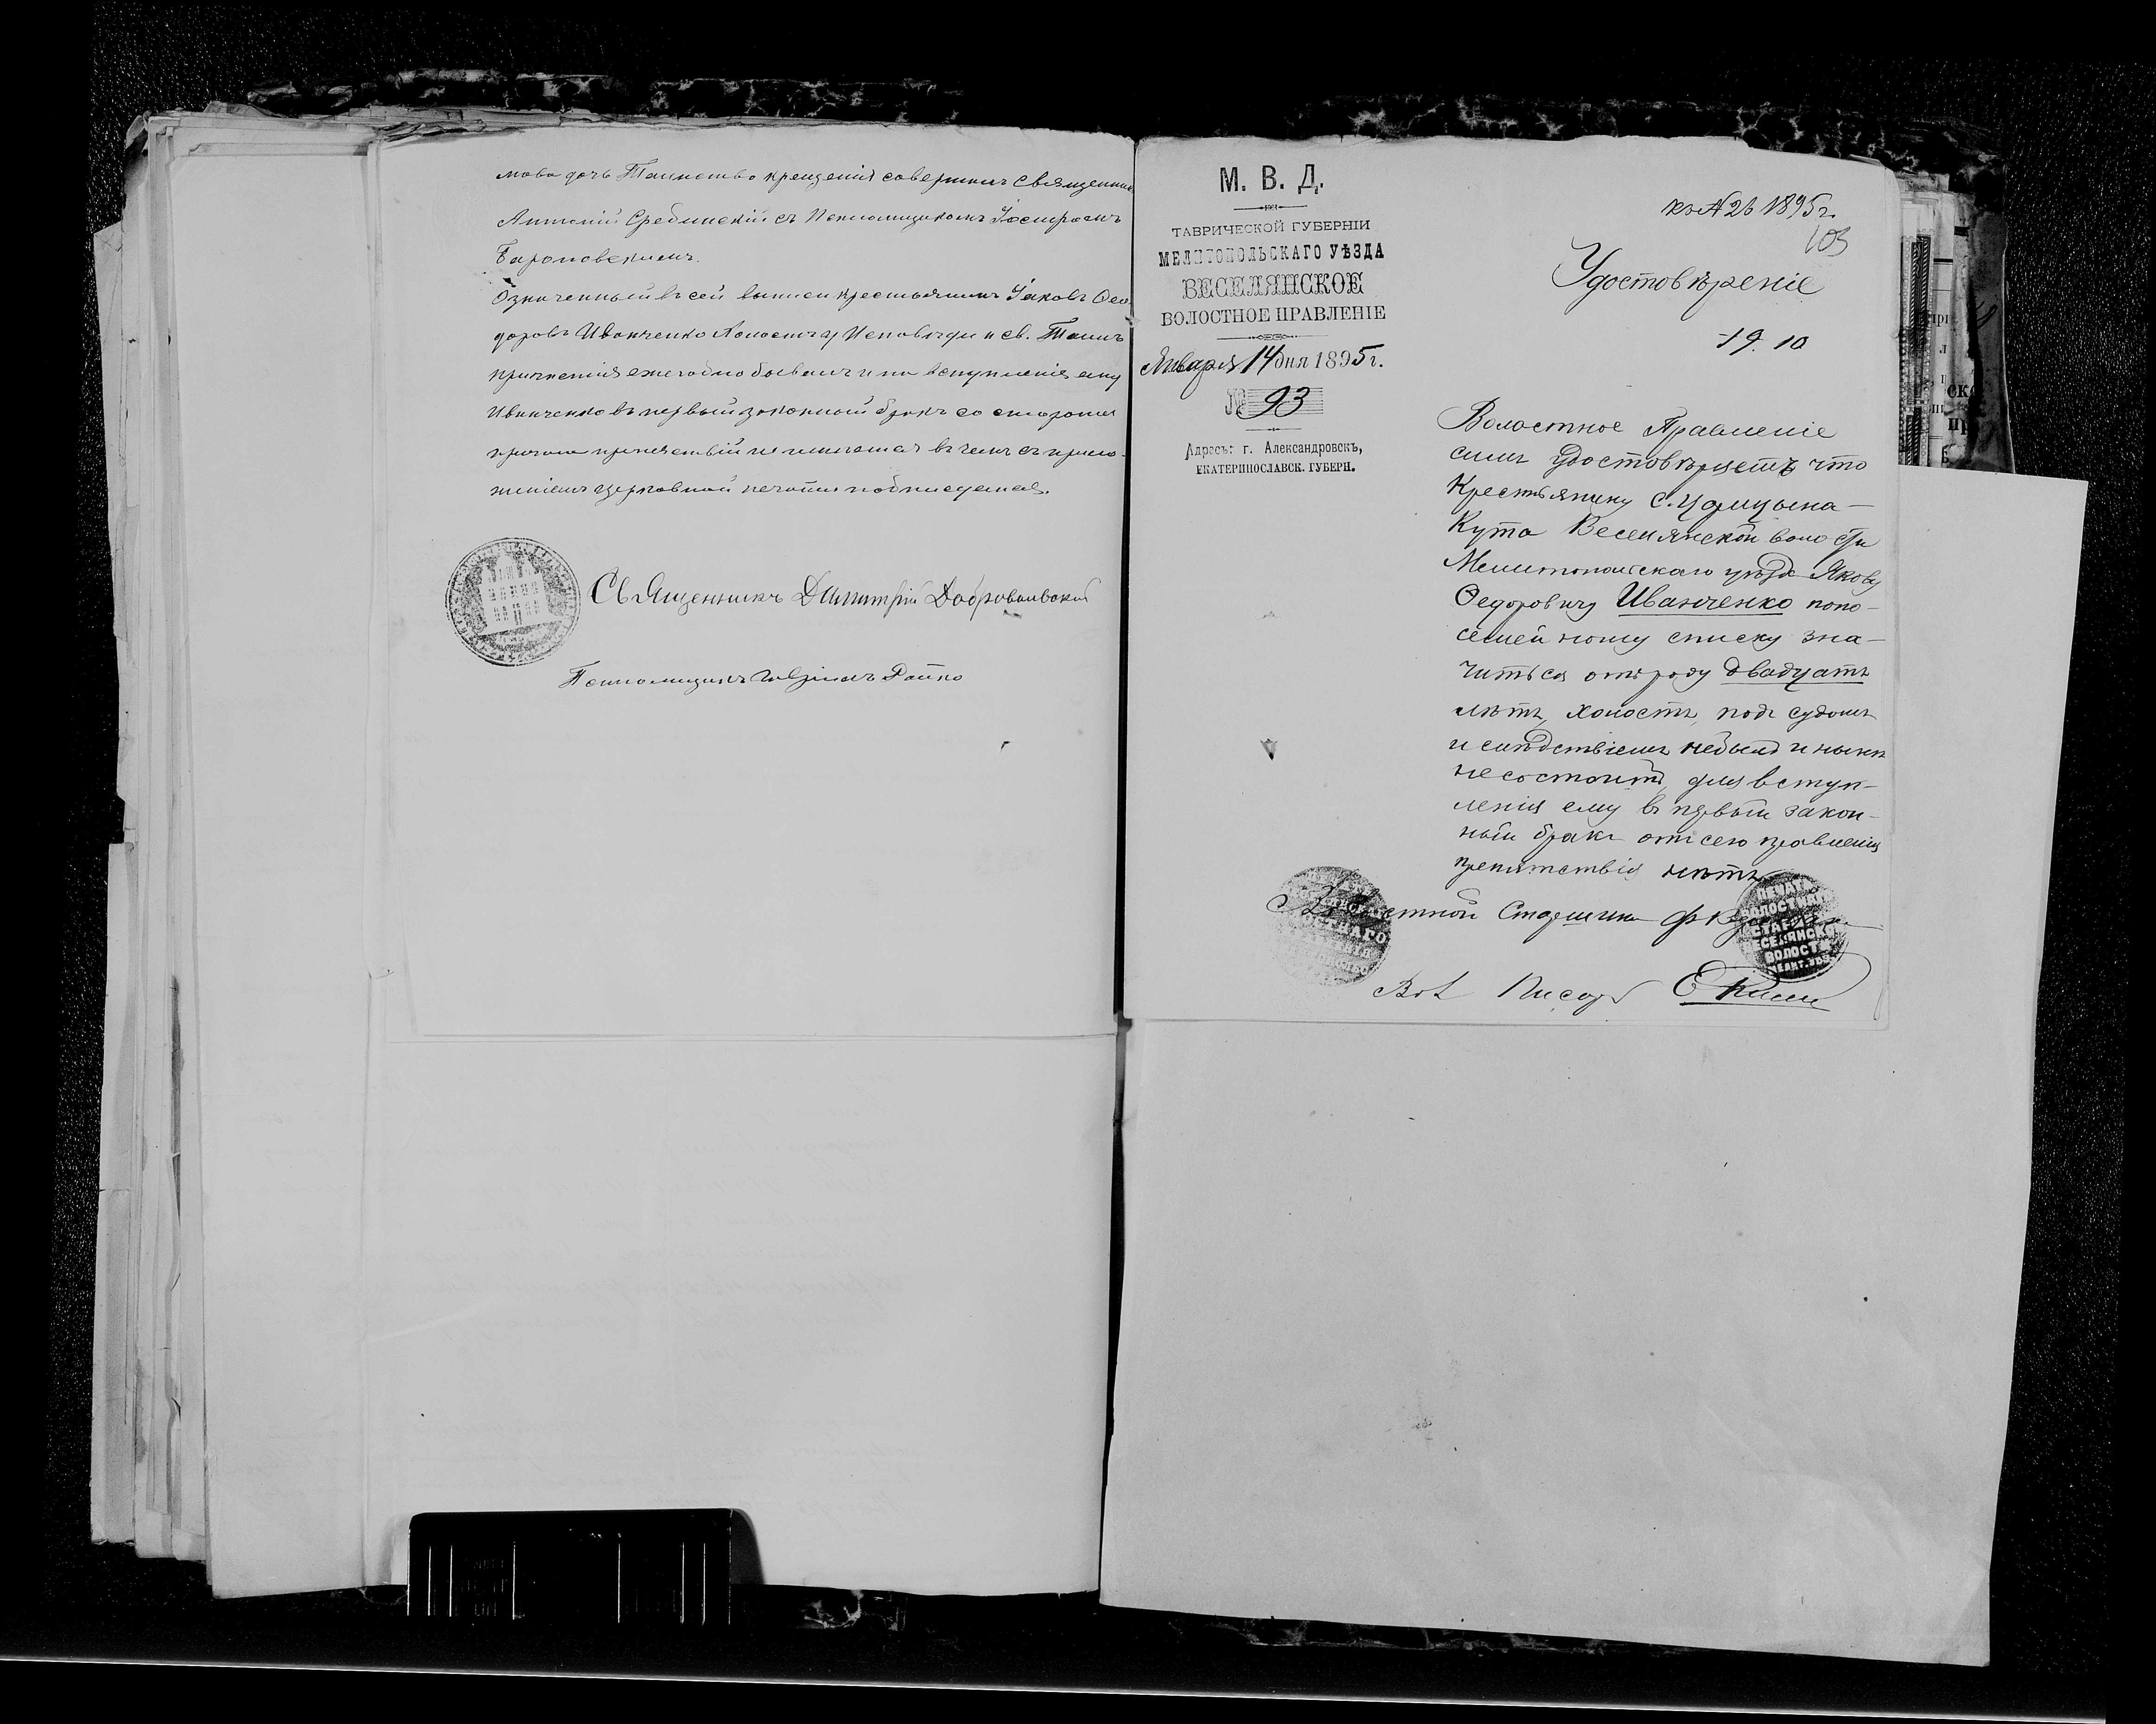 мова дочь Таинство крещенія совершилъ Священник
Антоній Сребинскій съ Псаломщикомъ Іосифомъ
Барановскимъ.
Означенный въ сей выписи крестьянинъ Іаковъ Ѳео
доровъ Иванченко Холостъ у Исповѣди и св. Таинъ
причастія ежегодно бывалъ и на вступленіе ему
Иванченко въ первый законный бракъ со стороны
причта препятствій не имѣется въ чемъ съ прило-
женіемъ церковной печати подписуемся.
Священникъ Димитрій Добровольскій
Псаломщикъ
М. В. Д.
ТАВРИЧЕСКОЙ ГУБЕРНІИ
МЕЛИТОПОЛЬСКАГО УѢЗДА
ВЕСЕЛЯНСКОЕ
ВОЛОСТНОЕ ПРАВЛЕНІЕ
Января 14 дня 1895 г.
№ 93
Адресъ: г. Александровскъ,
ЕКАТЕРИНОСЛАВСК. ГУБЕРН.
къ № 26 1895 г.
103
Удостовѣреніе
19. 10
Волостное Правленіе
симъ удостовѣряетъ что
Крестьянину С. Царицына-
Кута Веселянской волости
Мелитопольскаго уѣзда Якову
Ѳедоровичу Иванченко попо-
семейному списку зна-
читься отъ роду двадцать
лѣтъ, холостъ, подъ судомъ
и слѣдствіемъ небылъ и нынѣ
несостоитъ, для вступ-
ленія ему въ первый закон-
ный бракъ отъ сего правленія
препятствія нѣтъ
Волостной Старшина Ф
ПЕЧАТЬ
ВОЛОСТНАГО
СТАРШИНЫ
ВЕСЕЛЯНСКОЙ
ВОЛОСТИ
Вол Писарь Е